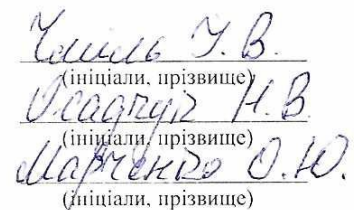 У. В.
(ініціали, прізвище)
Осадчук Н. В.
(ініціали, прізвище)
Марченко О. Ю.
(ініціали, прізвище)